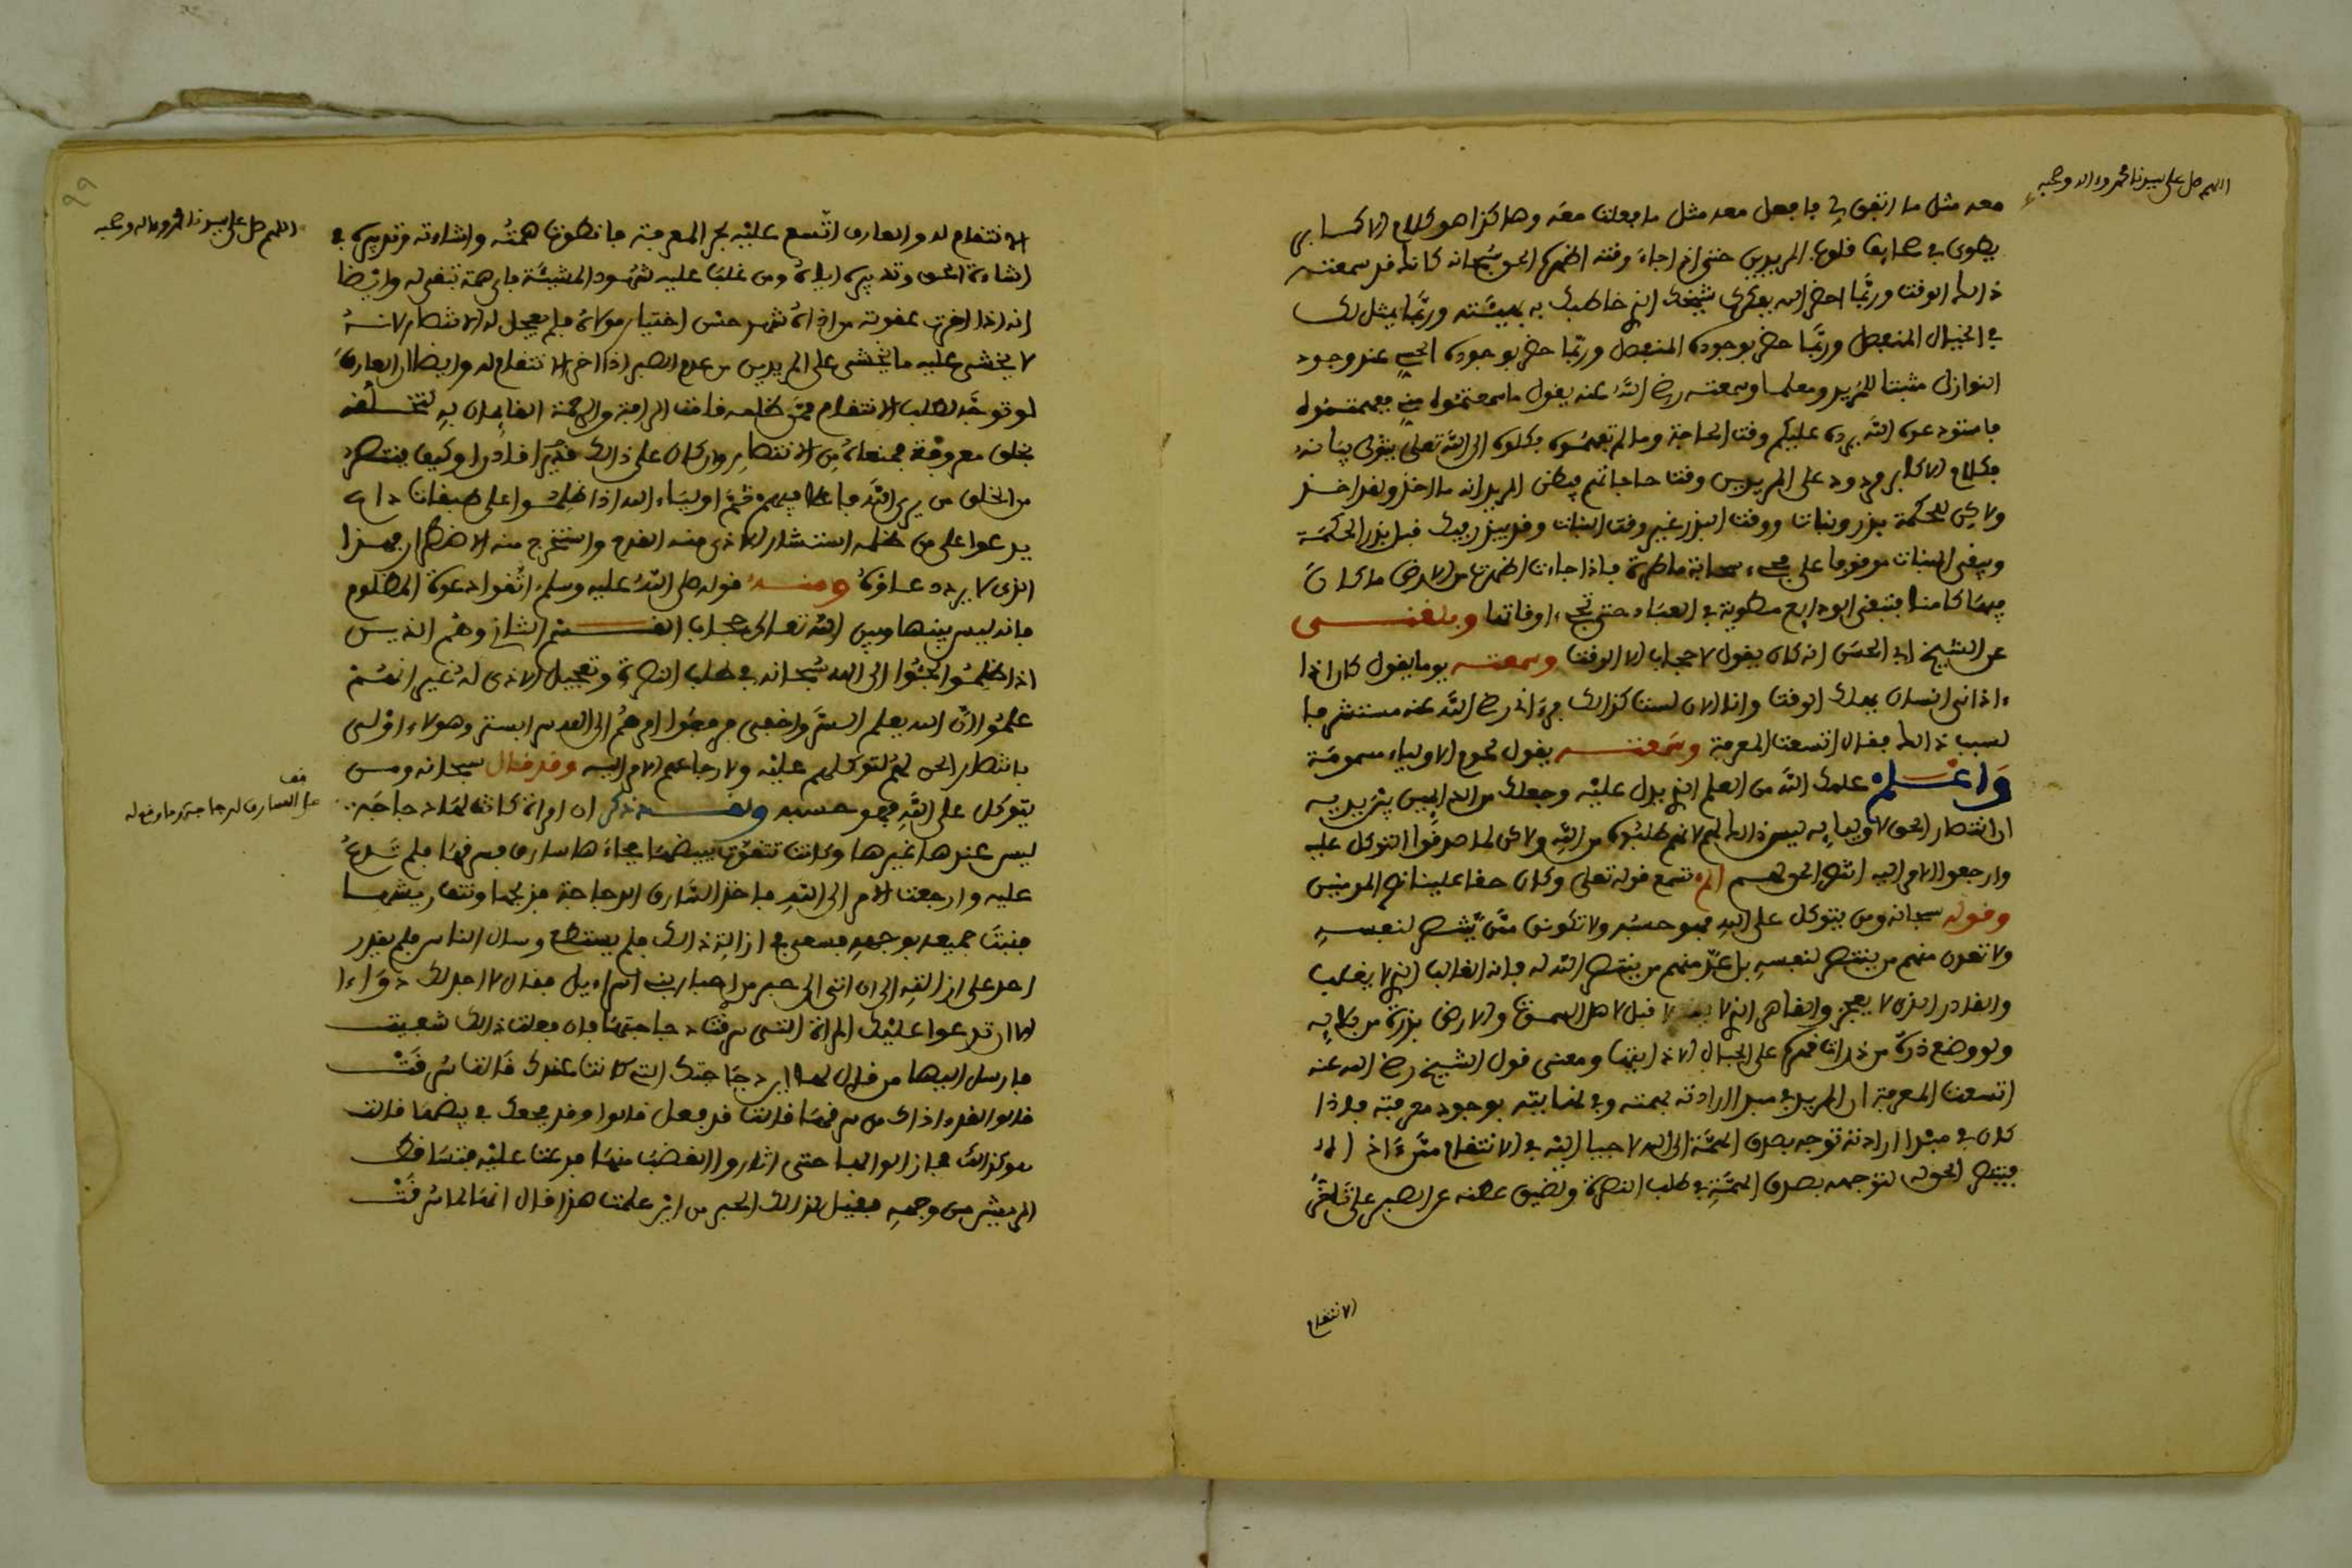 اللهم صل على سيدنا محمد واله وصحبه
معه مثل ما اتفق لي فافعل معه مثل ما فعلت معه وهاكذا هو كلام الاكابر
يطوى في صحايف قلوب المريدين حتى اذا جاء وقته اظهره الحق سبحانه كانك قد سمعته
ذالك الوقت وربما احضر الله بفكرك شيخك الذي خاطبك به بهيئته وربما يمثل لك
في الخيال المنفصل وربما حضر بوجوده المنفصل وربما حضر بوجوده الحسي عند وجود
النوازل مثبتا للمريد ومعلما وسمعته رضي الله عنه يقول ما سمعتموه مني ففهمتموه
فاستودعوه الله يرده عليكم وقت الحاجة وما لم تفهموه فكلوه الى الله تعلى يتولى بيانه
فكلام الاكابر مردود على المريدين وقت حاجاتهم فيظن المريد انه ما اخذ وقد اخذ
ولاكن للحكمة بذر ونبات ووقت البذر غير وقت النبات وقد يبذر فيك قبل بذر الحكمة
ويبقى النبات موقوفا على مجيء سحابة ماطرة فاذا جاءت اظهرت من الارض ما كان
فيها كامنا فتبقى الودايع مطوية في العباد حتى تجيء اوقاتها وبلغنى
عن الشيخ ابي الحسن انه كان يقول لا حجاب الا الوقت وسمعته يوما يقول كان اذا
ءاذاني انسان يهلك الوقت وانا الان لست كذالك
لسبب ذالك فقال اتسعت المعرفة وسمعته يقول لحوم الاولياء مسمومة
واعلم علمك الله من العلم الذي يدل عليه وجعلك من الدايبين بين يديه
ان انتصار الحق لاوليايه ليس ذالك لهم لانهم طلبوه من الله ولاكن لما صدقوا التوكل عليه
وارجعوا الامر اليه انتصر الحق لهم الم تسمع قوله تعلى وكان حقا علينا نصر المومنين
وقوله سبحانه ومن يتوكل على الله فهو حسبه ولا تكونن ممن ينتصر لنفسه
ولا تعدن منهم من ينتصر لنفسه بل عد منهم من ينتصر الله له فانه الغالب الذي لا يغلب
والقادر الذي لا يعجز والقاهر الذي لا قبل لاهل السموت والارض بذرة من بلايه
ولو وضع ذرة من ذرات قهره على الجبال لاذابتها ومعنى قول الشيخ رضي الله عنه
اتسعت المعرفة ان المريد في مبدا ارادته بهمته وفي نهايته بوجود معرفته فلذا
كان في مبدا ارادته توجه بصدق الهمة الى الله لاجيا اليه في الانتقام ممن ءاذاه
فينتصر الحق له لتوجهه بصدق الهمة في طلب النصرة ولضيق عطنه عن الصبر على تاخر
الانتقام
اللهم صل على سيدنا محمد وءاله وصحبه
الانتقام له والعارف اتسع عليه بحر المعرفة فانطوت همته واشاءته وتدبيره في
اشاءة الحق وتدبيره اياه ومن غلب عليه شهود المشيئة فاي همة تبقى له وايضا
انه اذا اخرت عقوبة من اذاه شهد حسن اختيار مولاه فلم يعجل له الانتصار لانه
لا يخشى عليه ما يخشى على المريدين من عدم الصبر اذا اخر الانتقام له وايضا ان العارف
لو توجه لطلب الانتقام ممن ظلمه قامت الرافة والرحمة القايمان به لتخلقه
بخلق معروفه فمنعاه من الانتصار وان كان على ذالك قديرا قادرا وكيف ينتصر
من الخلق من يرى الله فاعلا فيهم ثم اولياء الله اذا ظلموا على طبقات داع
يدعوا على من ظلمه استثار الاذى منه القدح واستخرج منه الاضطرار فهذا
الذي لا يرد دعاؤه ومنه قوله صلى الله عليه وسلم اتقوا دعوة المظلوم
فانه ليس بينها وبين الله تعالى حجاب القسم الثاني وهم الذين
اذا ظلموا لجئوا الى الله سبحانه في طلب النصرة وتعجيل الاذى له غير انهم
علموا ان الله يعلم السر واخفى فرفعوا امرهم الى الله سر السر وهولاء اولى
بانتصار الحق لهم لتوكلهم عليه ولارجاعهم الامر اليه وقد قال سبحانه ومن
يتوكل على الله فهو حسبه ولقد ذكر ان امراة كانت لها دجاجة
قف
على السارق لدجاجة وما وقع له
ليس عندها غيرها وكانت تتقوت ببيضها فجاءها سارق فسرقها فلم تدع
عليه وارجعت الامر الى الله فاخذ السارق الدجاجة فذبحها ونتف ريشها
فنبت جميعه بوجهه فسعى في ازالة ذالك فلم يستطع وسال الناس فلم يقدر
احد على ازالته الى ان اتى الى حبر من احبار بني اسراءيل فقال لا اجد لك دواء
الا ان تدعوا عليك المراة التي سرقت دجاجتها فان فعلت ذالك شفيت
فارسل اليها من قال لها اين دجاجتك التي كانت عندك فقالت سرقت
قالوا لقد اذاك من سرقها قالت قد فعل قالوا وقد فجعك في بيضها قالت
هو كذالك فمازالوا بها حتى اثاروا الغضب منها فدعت عليه فتساقط
الريش من وجهه فقيل لذالك الحبر من اين علمت هذا قال انها لما سرقت